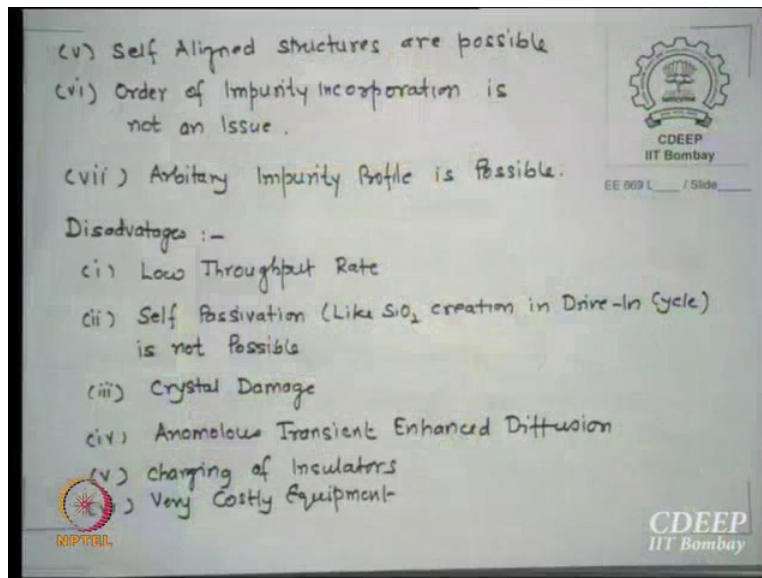 (v) Self Aligned Structures are possible
(vi) Order of Impurity Incorporation is
not an Issue.
(vii) Arbitary Impurity Profile is Possible.
CDEEP
IIT Bombay
EE 669 L____ / Slide____
Disadvatages :-
(i) Low Throughput Rate
(ii) Self Passivation (Like SiO₂ creation in Drive-In Cycle)
is not Possible
(iii) Crystal Damage
(iv) Anomolous Transient Enhanced Diffusion
(v) Charging of Insulators
Very Costly Equipment
NPTEL
CDEEP
IIT Bombay